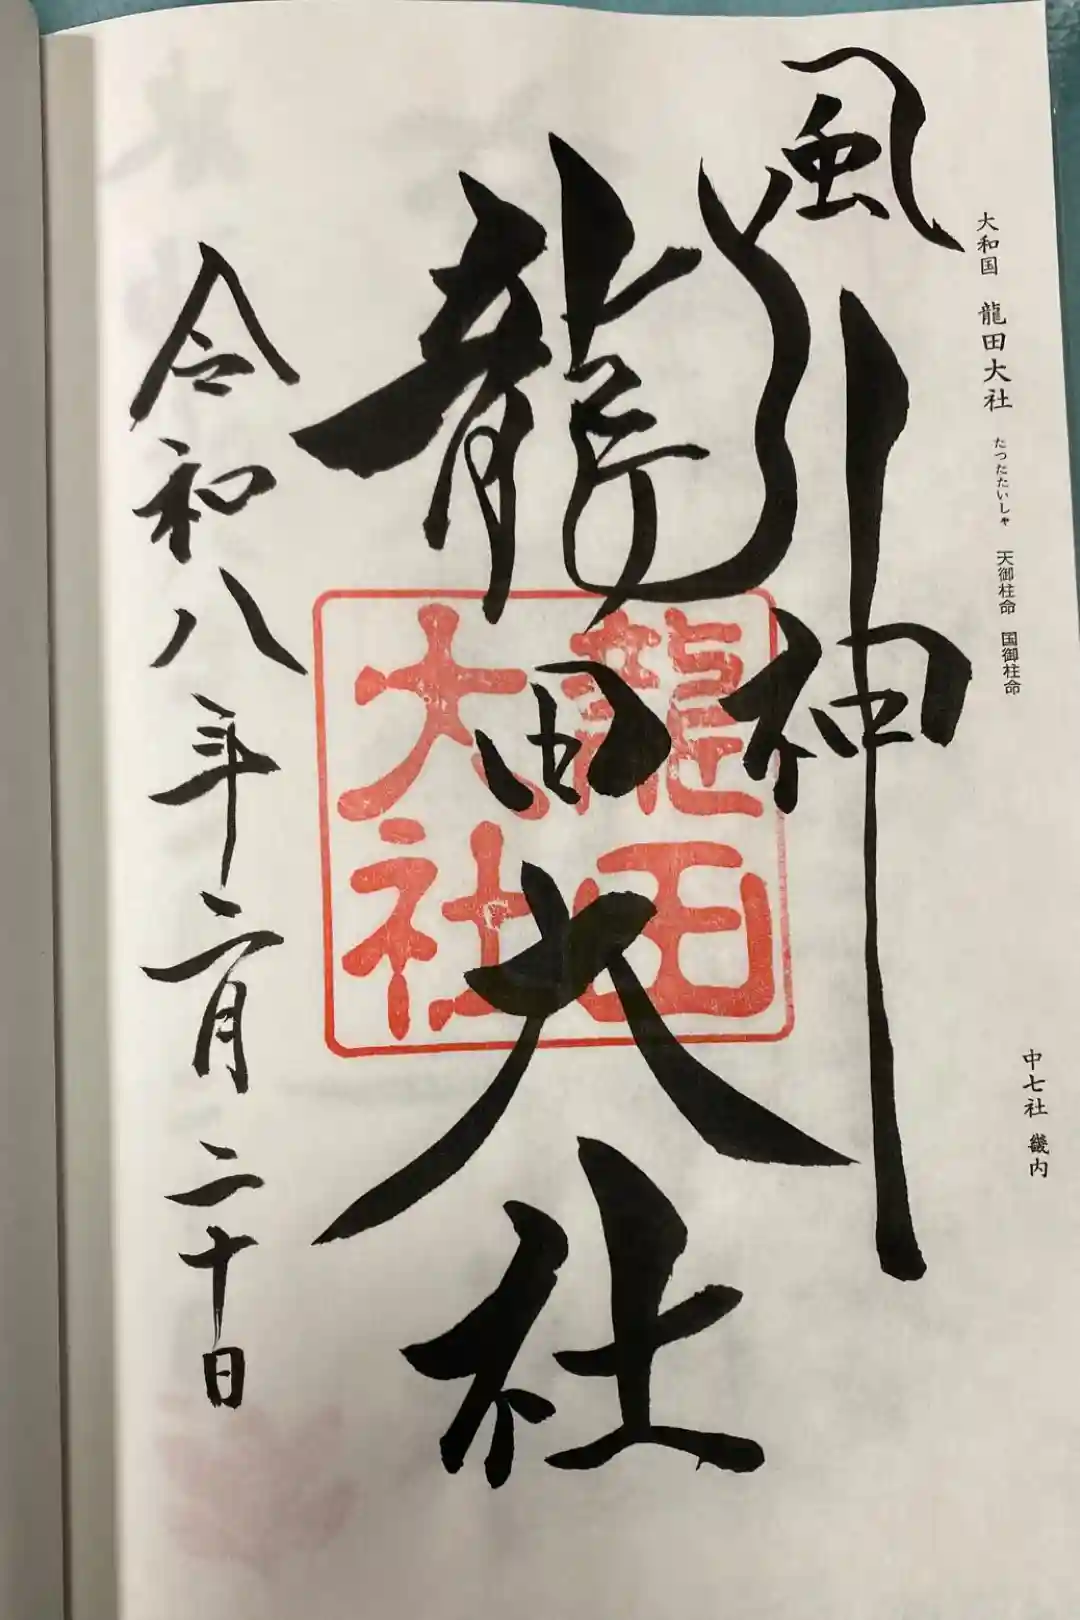 大和国 龍田大社 たつたたいしゃ 天御柱命 国御柱命
中七社 畿内
風神
龍田大社
龍田大社
令和八年二月二十日